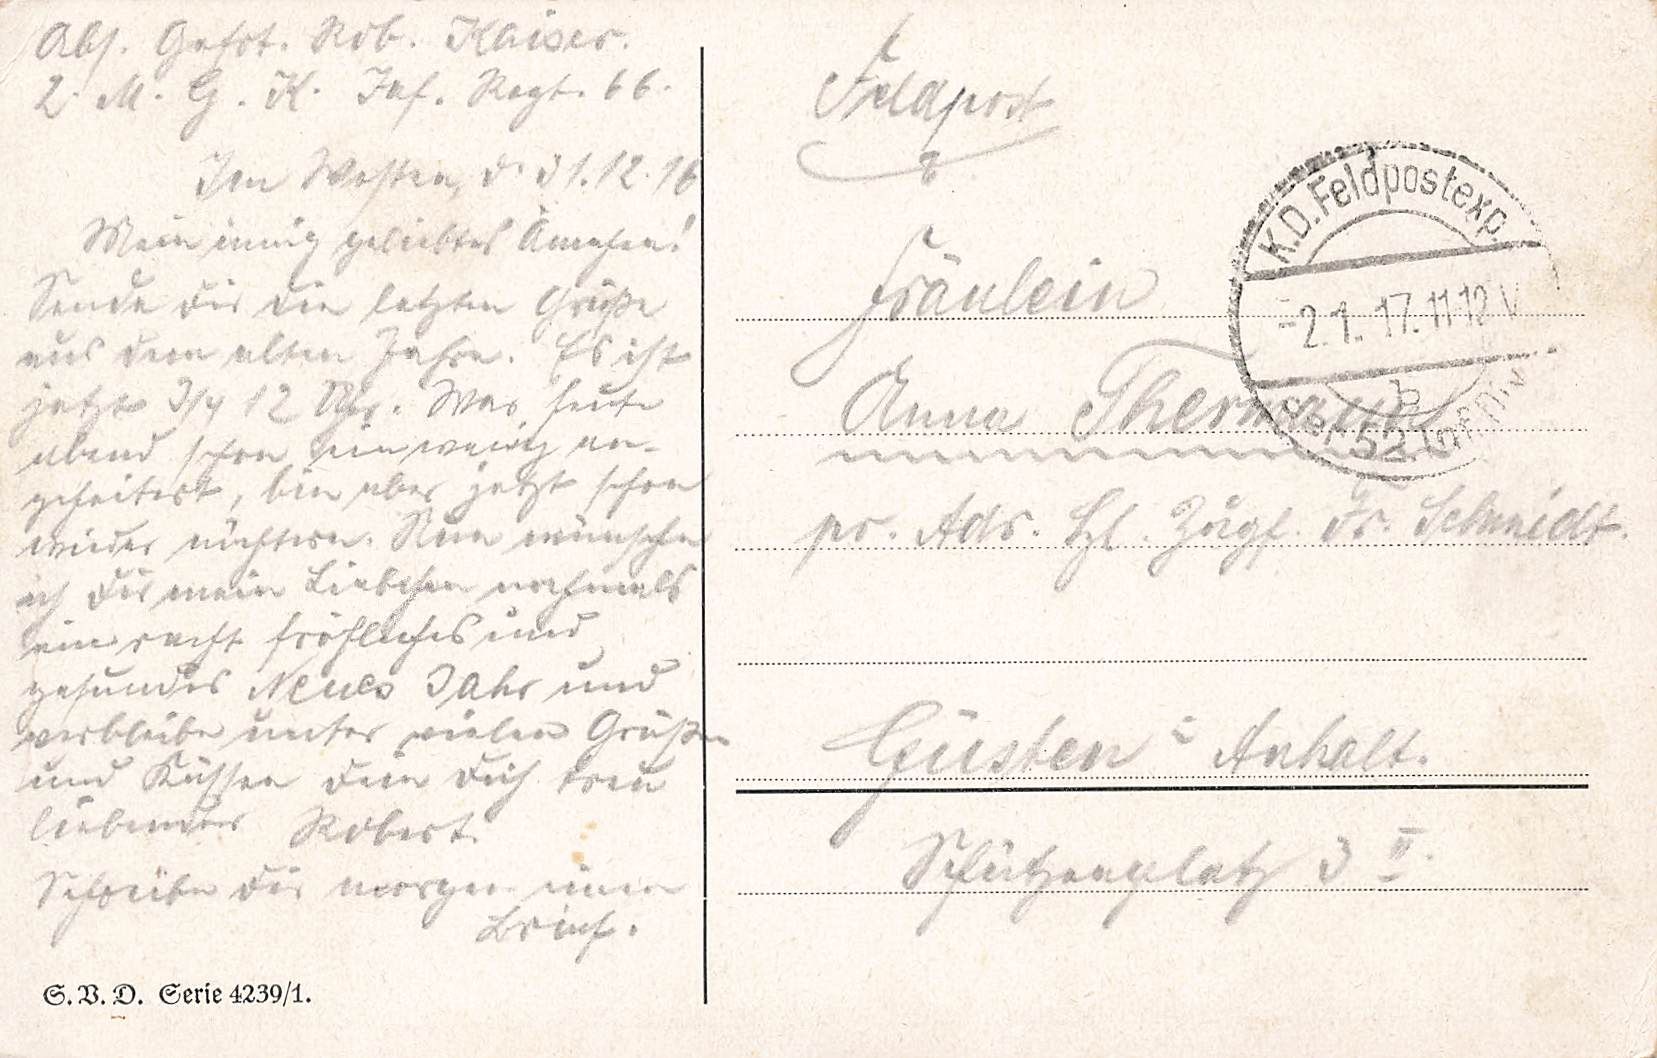 Abs. Gefrt. Rob. Kaiser.
2. M. G. K. Inf. Regt. 66.
Im Westen, d. 31.12.16
Mein innig geliebtes Ännchen!
Sende Dir die letzten Grüße
aus dem alten Jahre. Es ist
jetzt 3/4 12 Uhr. War heute
abend schon ein wenig an-
geheitert, bin aber jetzt schon
wieder nüchtern. Nun wünsche
ich Dir mein Liebchen nochmals
ein recht fröhliches und
gesundes Neues Jahr und
verbleibe unter vielen Grüßen
und Küssen Dein Dich treu
liebender Robert.
Schreibe Dir morgen einen
Brief.
S.V.D. Serie 4239/1.
Feldpost
K.D. Feldpostexp.
-2.1.17.11-12V
b
der 52. Inf. Div.
Fräulein
Anna
pr. Adr. Fr. Schmidt.
Güsten i Anhalt.
Schützenplatz 3 II.